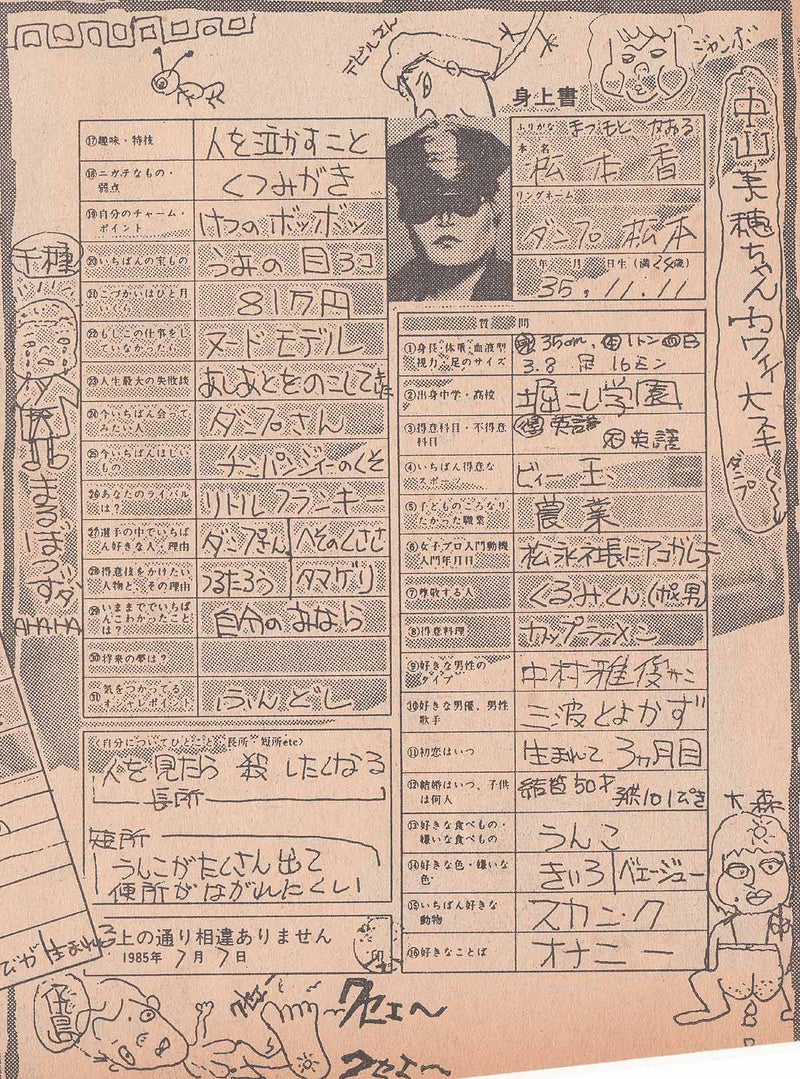 デビルさん
ジャンボ
身上書
ふりがな まつもと かおる
本名 松本 香
リングネーム
ダンプ 松本
年 月 日生(満24歳)
35. 11. 11
質 問
①身長・体重・血液型 視力・足のサイズ
35cm, 1トン B
3.8 足 16モン
②出身中学・高校 堀こし学園
③得意科目・不得意科目 得 英語 不 英語
④いちばん得意なスポーツ ビィー玉
⑤子どものころなりたかった職業 農業
⑥女子プロ入門動機 入門年月日 松永社長にアコガレテ
⑦尊敬する人 くるみくん(ポパ男)
⑧得意料理 カップラーメン
⑨好きな男性のタイプ 中村雅俊
⑩好きな男優、男性歌手 三波とよかず
⑪初恋はいつ 生まれて 3ヵ月目
⑫結婚はいつ、子供は何人 結婚50才 子供101ぴき
⑬好きな食べもの・嫌いな食べもの うんこ
⑭好きな色・嫌いな色 きいろ ベェージュー
⑮いちばん好きな動物 スカンク
⑯好きなことば オナニー
⑰趣味・特技 人を泣かすこと
⑱ニガテなもの・弱点 くつみがき
⑲自分のチャーム・ポイント けつのボッボッ
⑳いちばんの宝もの うみの目ヨコ
㉑こづかいはひと月いくら 817円
㉒もしこの仕事をしていなかったら ヌードモデル
㉓人生最大の失敗談 あしあとをのこしてきた
㉔今いちばん会ってみたい人 ダンプさん
㉕今いちばんほしいもの チンパンジィーのくそ
㉖あなたのライバルは? リトルフランキー
㉗選手の中でいちばん好きな人・理由 ダンプさん へそのくささ
㉘得意技をかけたい人物と、その理由 つるたろう タマゲリ
㉙いままででいちばんこわかったことは? 自分のおなら
㉚将来の夢は?
㉛気をつかってるオシャレポイント ふんどし
(自分についてひとこと・長所・短所etc)
人を見たら 殺 したくなる
長所
短所
うんこがたくさん出て
便所がながれにくい
上の通り相違ありません
1985年 7月 7日
印
中山美穂ちゃんカワイィ大スキ〜
ダンプ
千種
まるぼうずダ
AHAHA
大森
飛鳥
クセェ〜
クセェ〜